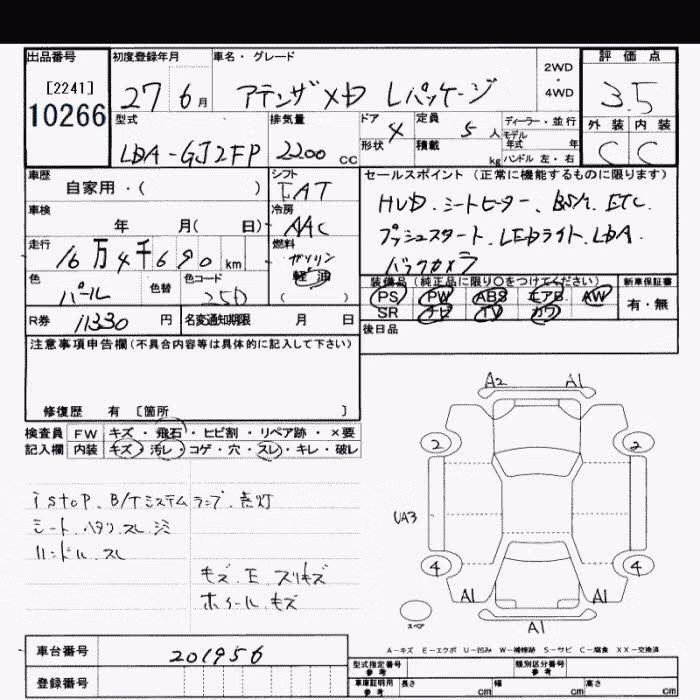 出品番号 初度登録年月 車名・グレード 2WD・4WD 評価点
[2241]
10266 27 6月 アテンザXD Lパッケージ 3.5
型式 排気量 ドア 4 定員 5 人 ディーラー・並行 外装 内装
モデル年式 年
LDA-GJ2FP 2200 CC 形状 積載 kg ハンドル 左・右 C C
車歴 シフト セールスポイント (正常に機能するものに限ります)
自家用・( ) FAT HUD.シートヒーター、BSM.ETC.
車検 冷房
年 月( 日) AAC プッシュスタート.LEDライト.LDA.
走行 燃料
16万4千690km ガソリン バックカメラ
軽油
色 色替 色コード 装備品 (純正品に限り○をつけてください) 新車保証書
パール 25D ( ) PS PW ABS エアB AW 有・無
SR ナビ TV カワ
R券 11330 円 名変通知期限 月 日 後日品
注意事項申告欄(不具合内容等は具体的に記入して下さい)
修復歴 有 〔箇所 〕
検査員 FW キズ・飛石・ヒビ割・リペア跡・×要
記入欄 内装 キズ・汚レ・コゲ・穴・スレ・キレ・破レ
A2 A1
2 2
i stop、B/Tミステムランプ.点灯
シート.ハタリ.スレ.シミ UA3
ハンドル.スレ
4 4
キズ.E.スリキズ A1 A1
ホイールキズ
スペア A1
A-キズ E-エクボ U-凹み W-補修跡 S-サビ C-腐食 XX-交換済
車台番号 201956
型式指定番号 参考 類別区分番号 参考
登録番号 車庫証明用 参考 長さ cm 幅 cm 高さ cm